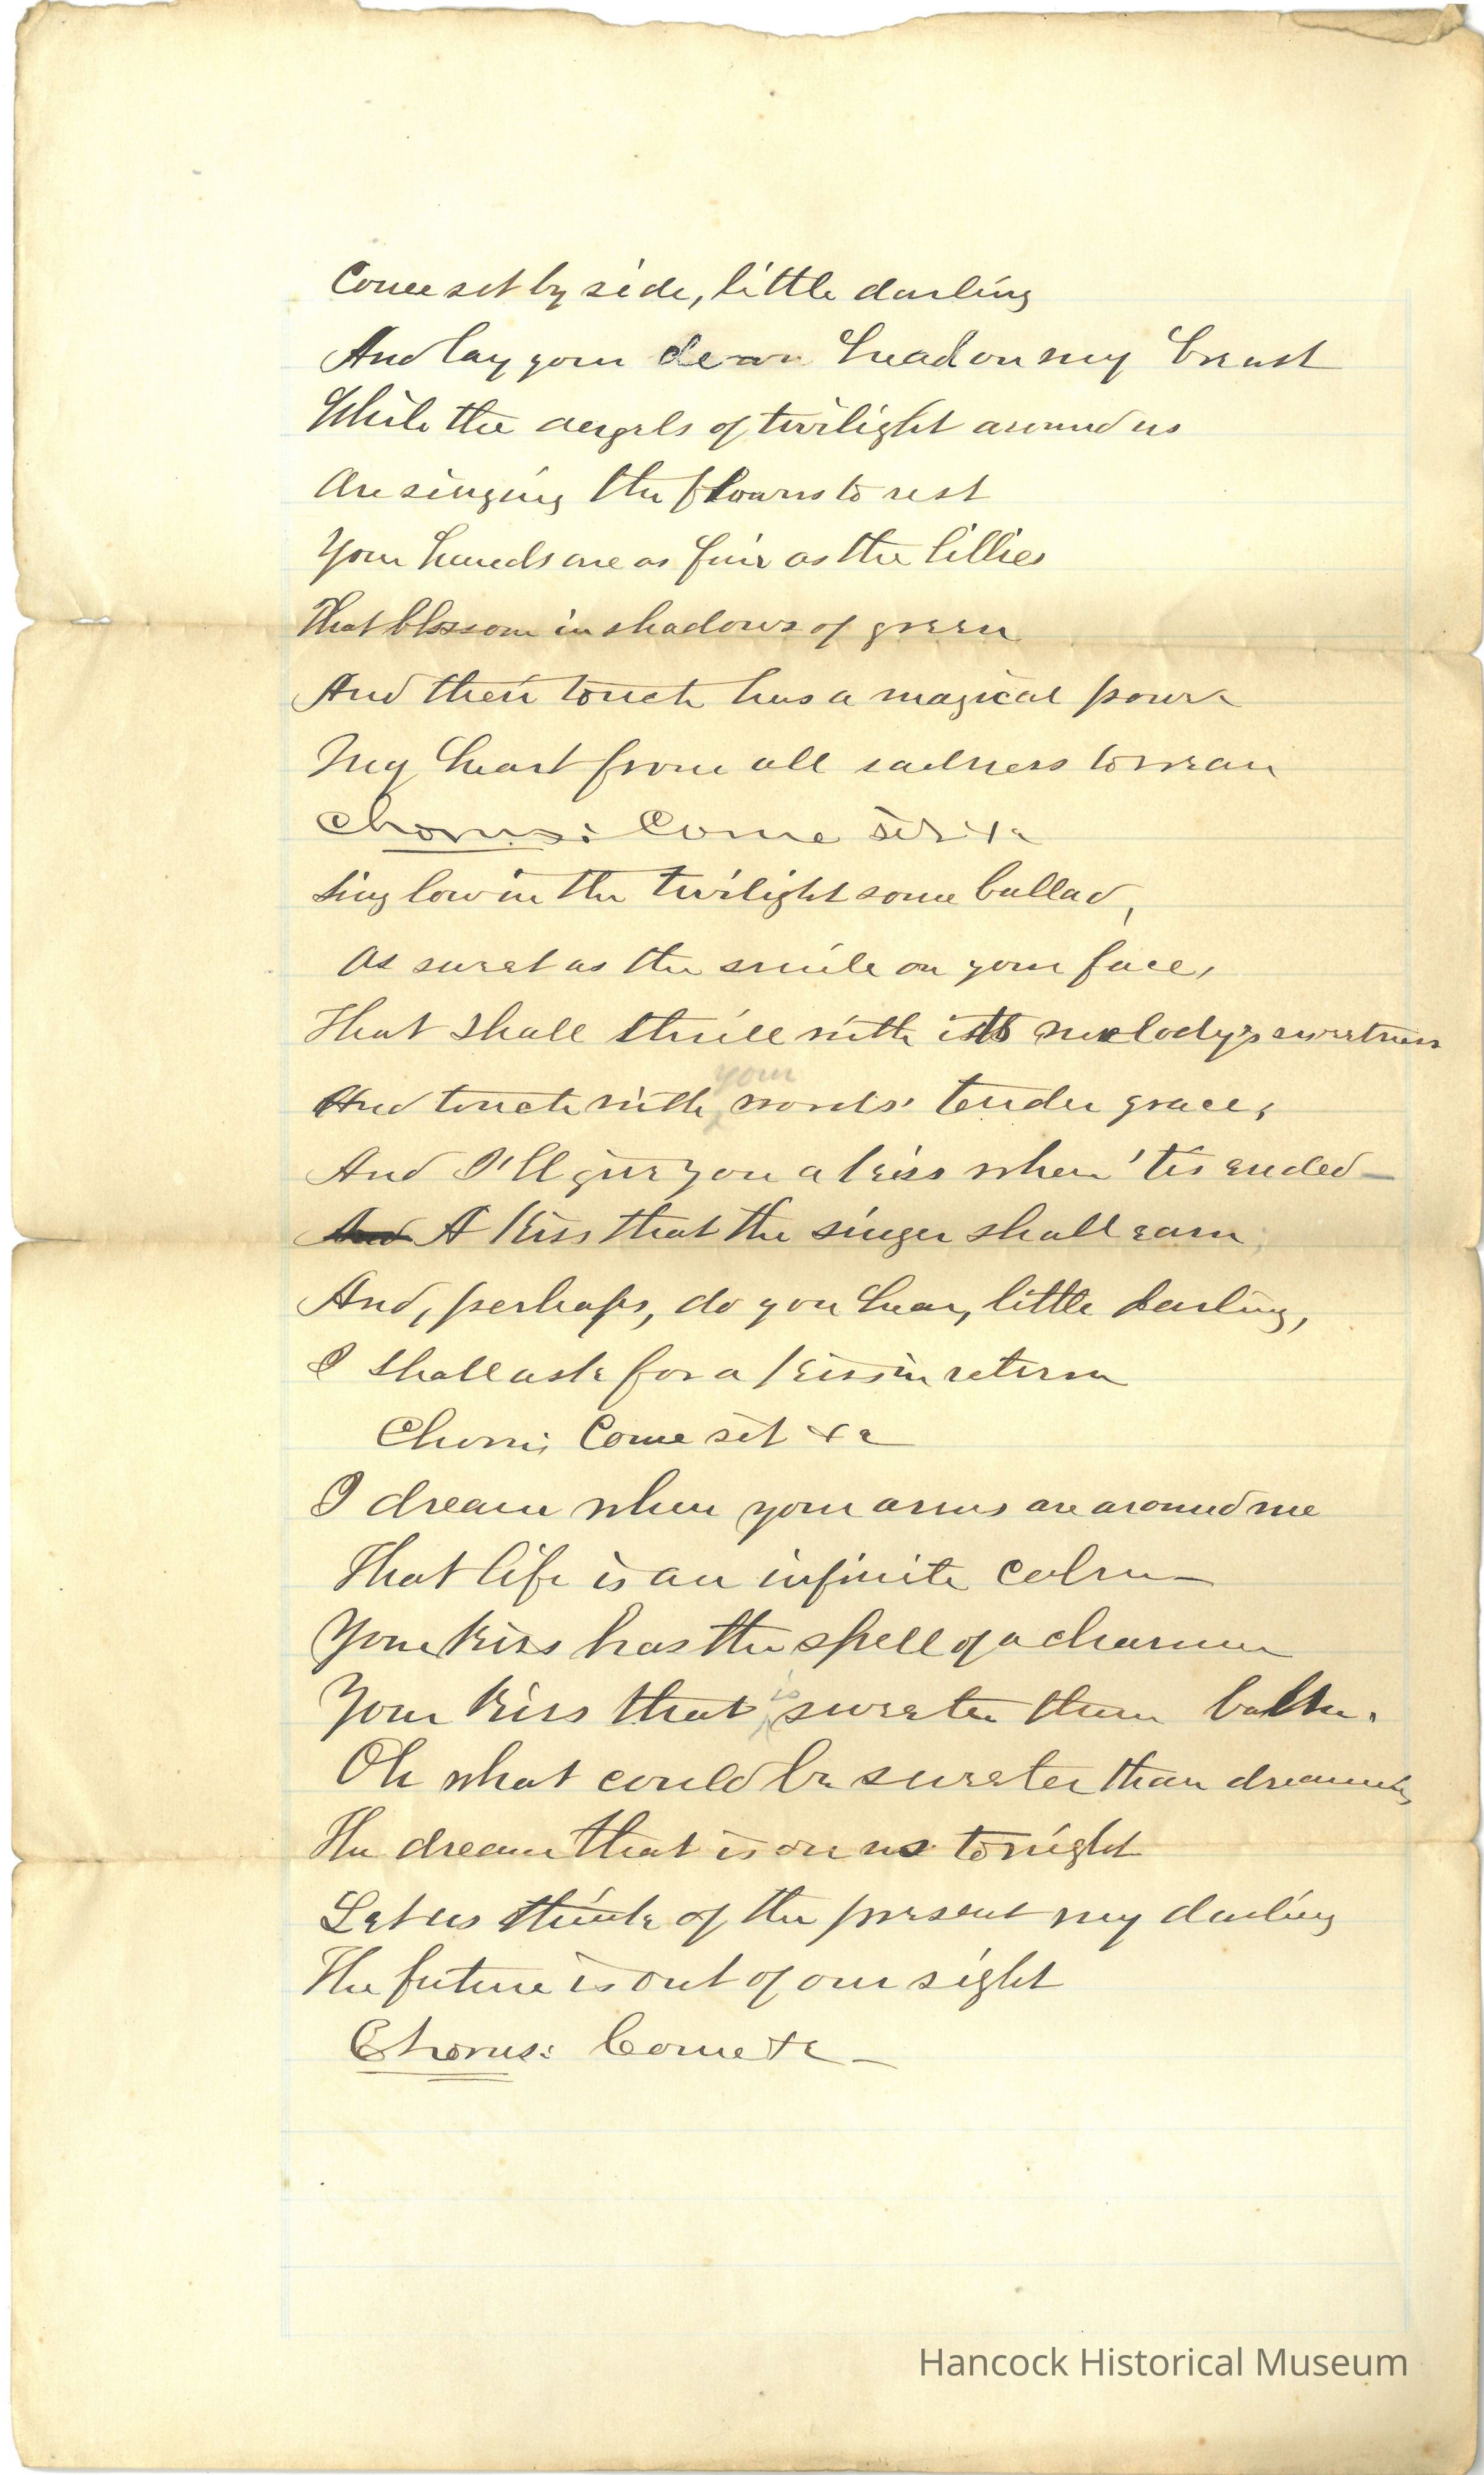 Come sit by side, little darling
And lay your dear head on my breast
While the angels of twilight around us
Are singing the flowers to rest
Your hands are as fair as the lillies
That blossom in shadows of green
And their touch has a magical power
My heart from all sadness to wean
Chorus: Come sit &c
Sing low in the twilight some ballad,
As sweet as the smile on your face,
That shall thrill with its melody's sweetness
And touch with your words' tender grace,
And I'll give you a kiss when 'tis ended—
And A kiss that the singer shall earn
And, perhaps, do you hear, little darling,
I shall ask for a kiss in return
Chorus; Come sit &c
I dream when your arms are around me
That life is an infinite calm—
Your kiss has the spell of a charmer
Your kiss that is sweeter than balm.
Oh what could be sweeter than dreaming
The dream that is on us tonight
Let us think of the present my darling
The future is out of our sight
Chorus: Come &c—
Hancock Historical Museum